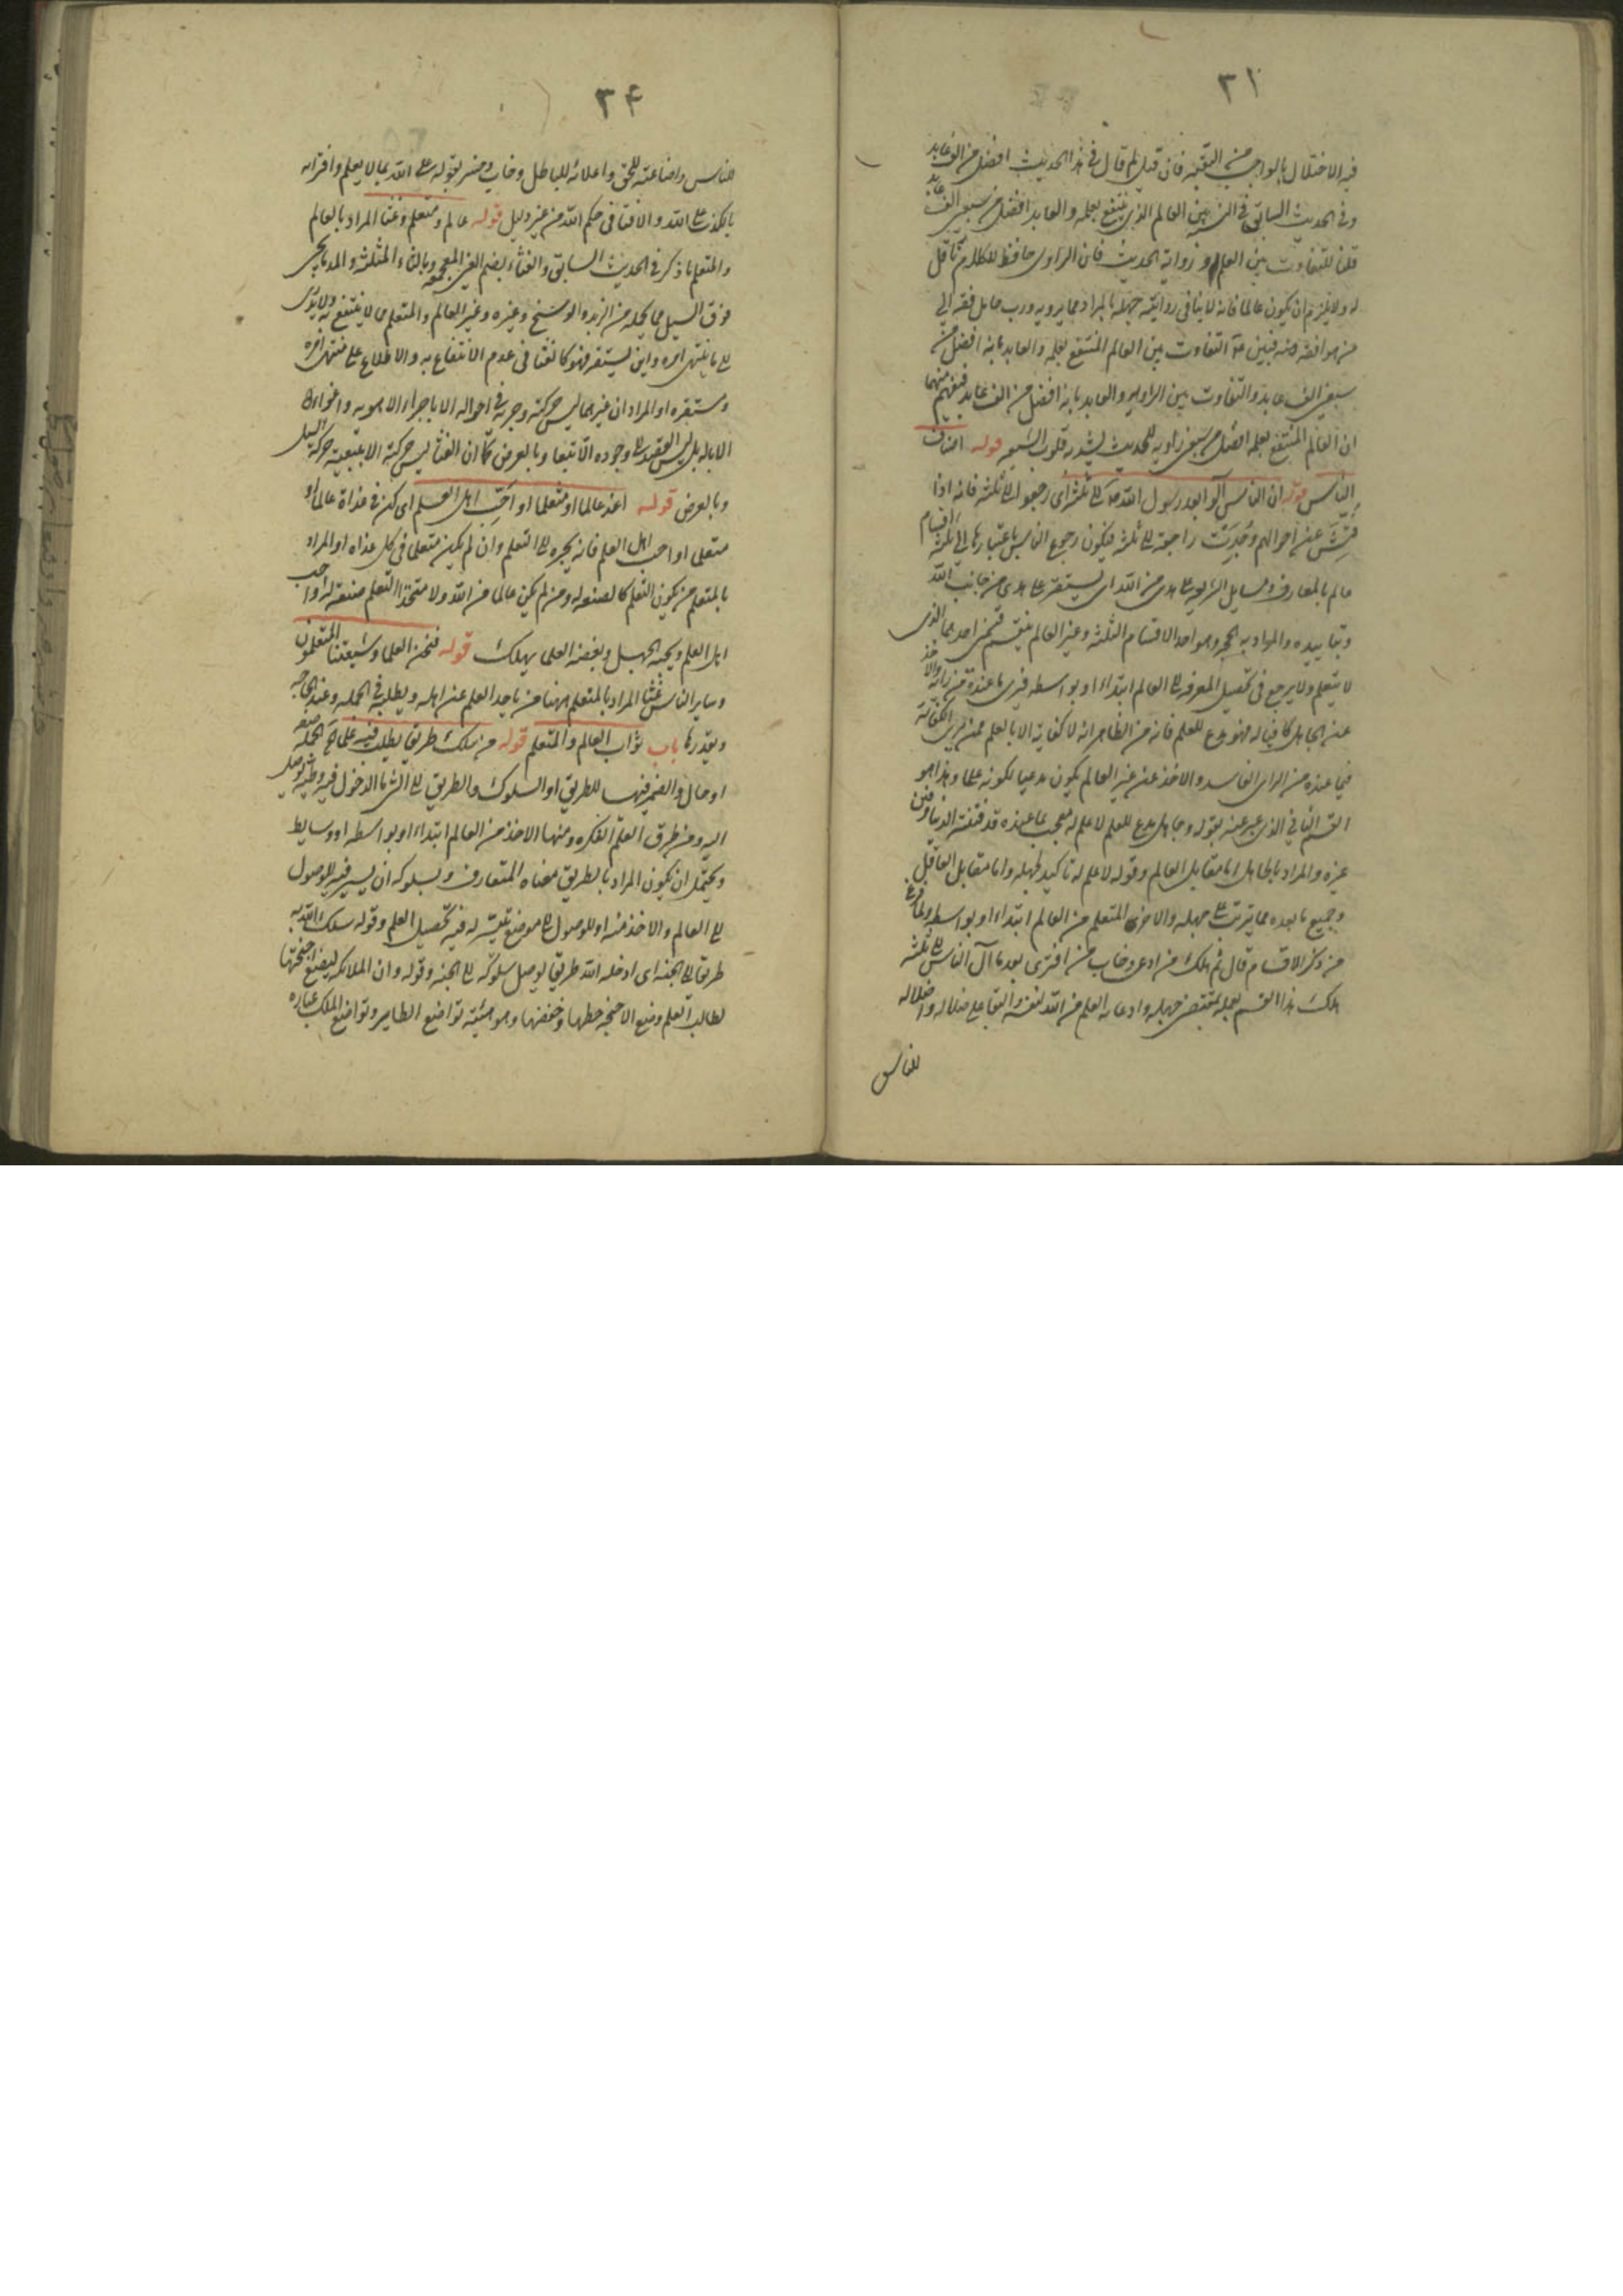 ٣١
فيه الاختلال بالواجب من التقيه فان قيل لم قال في هذا الحديث افضل من الف عابد
وفي الحديث السابق في النسبة بين العالم الذي ينتفع بعلمه والعابد افضل من سبعين الف عابد
قلنا للتفاوت بين العلم و رواية الحديث فان الراوي حافظ للكلام ناقل
له ولا يلزم ان يكون عالما فانه لا ينافي روايته جهله بالمراد مما يرويه ورب حامل فقه الى
من هو افقه منه فبين التفاوت بين العالم المنتفع بعلمه والعابد بانه افضل من
سبعين الف عابد والتفاوت بين الراوي والعابد بانه افضل من الف عابد فيفهم منهما
ان العالم المنتفع بعلمه افضل من سبعين راوية للحديث ليشدد قلوب الشيعه قوله اصناف
الناس قوله ان الناس آلوا بعد رسول الله الى ثلثة اى رجعوا الى ثلثة فانه اذا
فتشت عن احوالهم وجدت راجعة الى ثلثة فيكون رجوع الناس باعتبارها الى ثلثة اقسام
عالم بالمعارف ومسايل الشريعه على هدى من الله اى يستقر على هدى من جانب الله
وبتاييده والمراد به الحجه وهو احد الاقسام الثلثه وغير العالم ينقسم قسمين احدهما الذى
لا يتعلم ولا يرجع فى تحصيل المعرفه الى العالم ابتداء او بواسطه فيرى ما عنده من رايه والاخذ
عن الجاهل كافيا له فهو مدع للعلم فانه من الظاهر انه لا كفايه الا بالعلم فمن يرى الكفاية
فيما عنده من الراى الفاسد والاخذ عن غير العالم يكون مدعيا لكونه علما وهذا هو
القسم الثاني الذى عبر عنه بقوله وجاهل مدع للعلم لا علم له معجب بما عنده قد فتنته الدنيا وفتن
غيره والمراد بالجاهل اما مقابل العالم وقوله لا علم له تاكيد لجهله واما مقابل العاقل
وجميع ما بعده مما يترتب على جهله والاخرى المتعلم من العالم ابتداء او بواسطه ولما فرغ
من ذكر الاقسام قال ثم هلك من ادعى وخاب من افترى بعد ما آل الناس الى ثلثه
هلك هذا القسم بعمله بمقتضى جهله وادعائه العلم من الله لنفسه والبقا على ضلاله واضلاله
للناس
٣٤
للناس واضاعته للحق واعلائه للباطل وخاب وخسر بقوله على الله بما لا يعلم وافترائه
بالكذب على الله والافتا فى حكم الله من غير دليل قوله عالم ومتعلم وغثا المراد بالعالم
والمتعلم ما ذكر فى الحديث السابق والغثاء بضم الغين المعجمه وبالثاء المثلثه والمد ما يجئ
فوق السيل مما يحمله من الزبد والوسخ وغيره وغير العالم والمتعلم مما لا ينتفع به ولا يؤدى
الى ما ينتهى امره واين يستقر فهو كالغثا فى عدم الانتفاع به والاطلاع على منتهى امره
ومستقره او المراد ان غيرهما ليس حركته وجريه فى احواله الا باجراء الاهويه واغواء
الاباله بل ليس القصد الى وجوده الا تبعا وبالعرض كما ان الغثا ليس حركته الا بتبعية حركة السيل
وبالعرض قوله اغد عالما او متعلما او احب اهل العلم اى كن فى غداة عالما او
متعلما او احب اهل العلم فانه يجره الى التعلم وان لم يكن متعلما فى كل غداه او المراد
بالمتعلم من يكون التعلم كالصنعه له ومن لم يكن عالما من الله ولا متخذا التعلم صنعة له واحب
اهل العلم ويحبه الجهل وبغضه العلما يهلك قوله فنحن العلما وشيعتنا المتعلمون
وساير الناس غثا المراد بالمتعلم ههنا من ياخذ العلم عن اهله ويطلبه فى الجمله وعند الحاجه
وبقدرها باب ثواب العالم والمتعلم قوله من سلك طريقا يطلب فيه علما الجملة صفه
او حال والضمير فيها للطريق او السلوك والطريق الى الشئ ما الدخول فيه وطيه يوصل
اليه ومن طرق العلم الفكره ومنها الاخذ من العالم ابتداء او بواسطه او وسايط
ويحتمل ان يكون المراد بالطريق معناه المتعارف وبسلوكه ان يسير فيه للوصول
الى العالم والاخذ منه او للوصول الى موضع تيسر له فيه تحصيل العلم وقوله سلك الله به
طريقا الى الجنه اى ادخله الله طريقا يوصل سلوكه الى الجنه وقوله وان الملائكه لتضع اجنحتها
لطالب العلم وضع الاجنحه حطها وخفضها وهو هيئة تواضع الطاير وتواضع الملك عباره